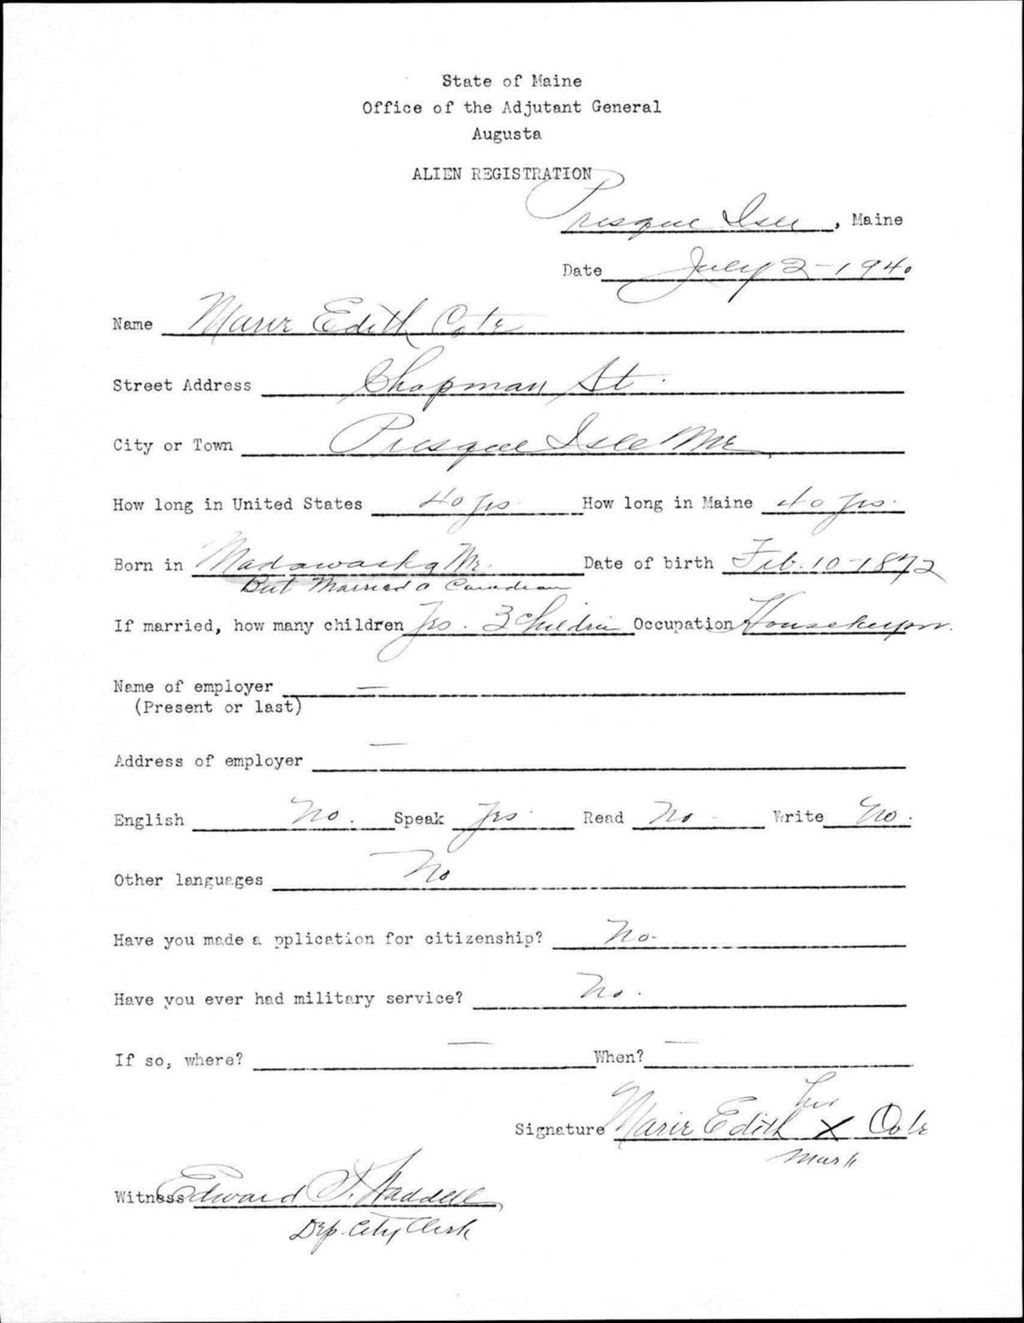 State of Maine
Office of the Adjutant General
Augusta
ALIEN REGISTRATION
Presque Isle, Maine
Date July 2 - 1940
Name Marie Edith Cote
Street Address Chapman St.
City or Town Presque Isle Me.
How long in United States 40 yrs. How long in Maine 40 yrs.
Born in Madawaska Me. Date of birth Feb. 10 - 1872
But Married a Canadian
If married, how many children Yes. 3 Children Occupation Housekeeper.
Name of employer —
(Present or last)
Address of employer —
English No. Speak Yes. Read No - Write No.
Other languages No
Have you made a pplication for citizenship? No-
Have you ever had military service? No.
If so, where? — When? —
her
Signature Marie Edith X Cote
Mark
Witness Edward T. Waddell
Dep. City Clerk